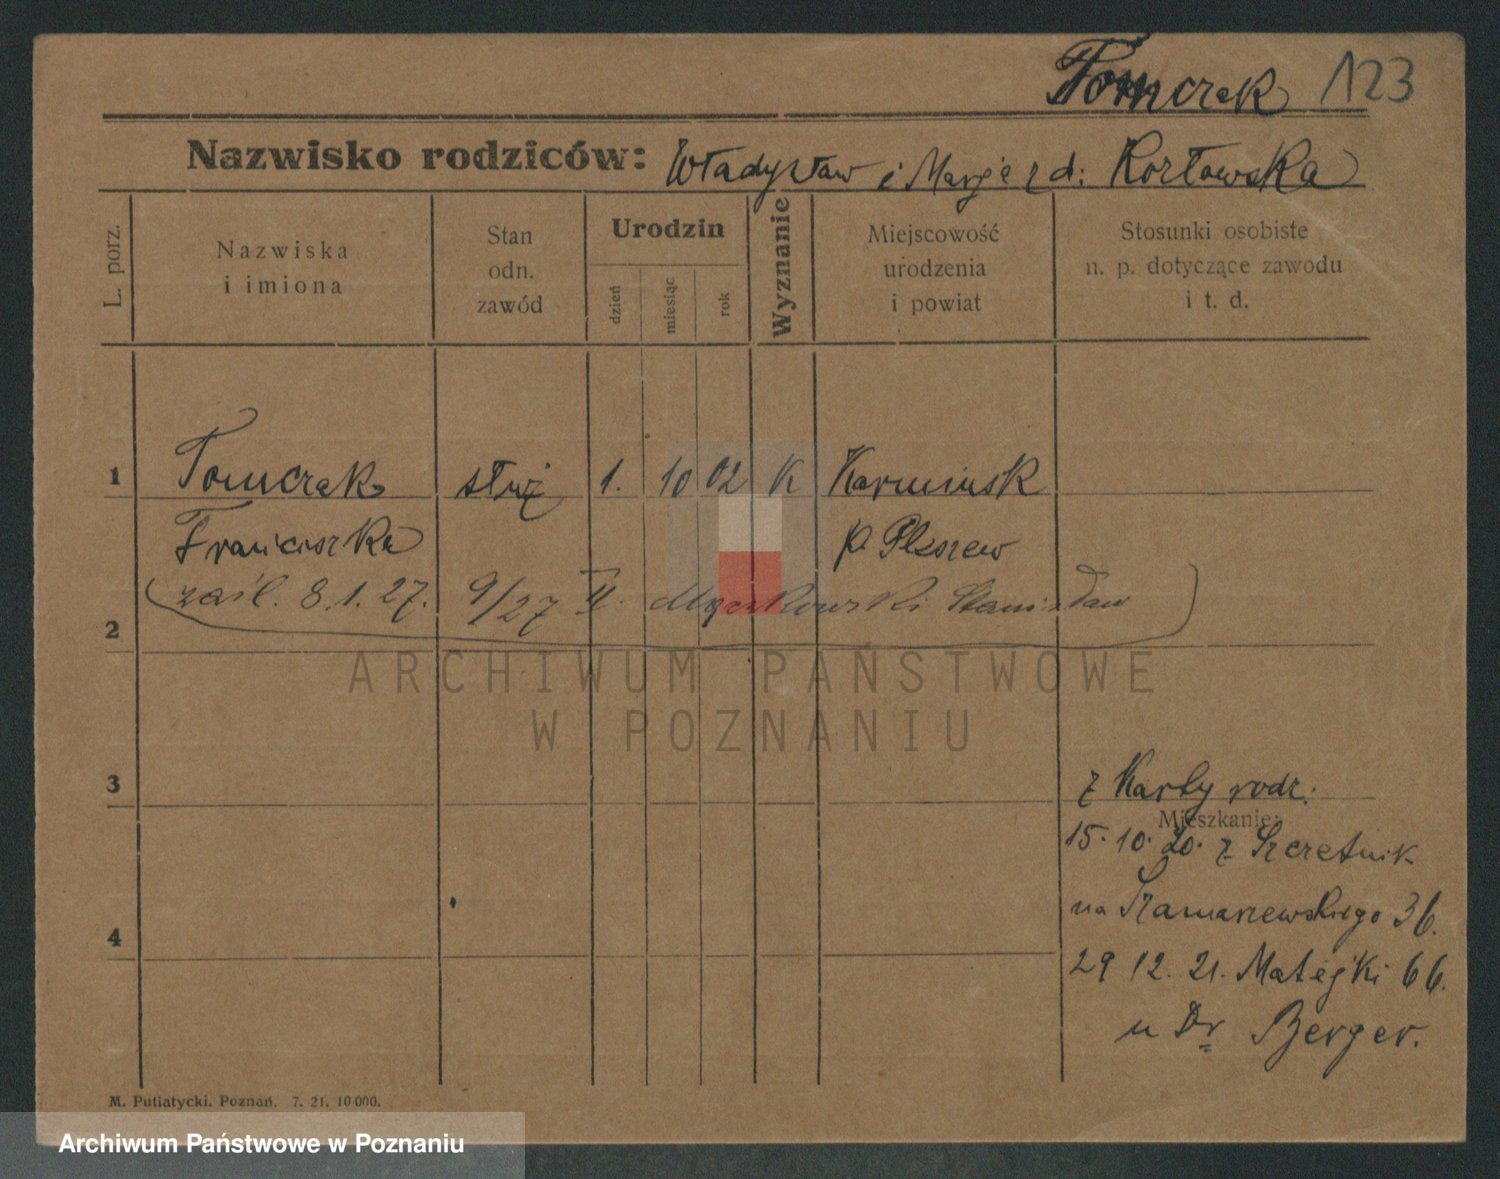 Tomczak 123
Nazwisko rodziców: Władysław i Marje z d: Kozłowska
L. porz.
Nazwiska
i imiona
Stan
odn.
zawód
Urodzin
dzień
miesiąc
rok
Wyznanie
Miejscowość
urodzenia
i powiat
Stosunki osobiste
n. p. dotyczące zawodu
i t. d.
1 Tomczak służ 1. 10 02 K Karminsk
Franciszka p. Pleszew
(zaśl. 8.1.27. 9/27 II. Mączkowski Stanisław)
2
ARCHIWUM PAŃSTWOWE
W POZNANIU
3 z Karty rodz.
Mieszkanie:
15.10.20. z Szczetnik
na Szamarzewskiego 36.
4
29 12. 21. Matejki 66.
u Dr Berger.
M. Putiatycki. Poznań. 7. 21. 10 000.
Archiwum Państwowe w Poznaniu